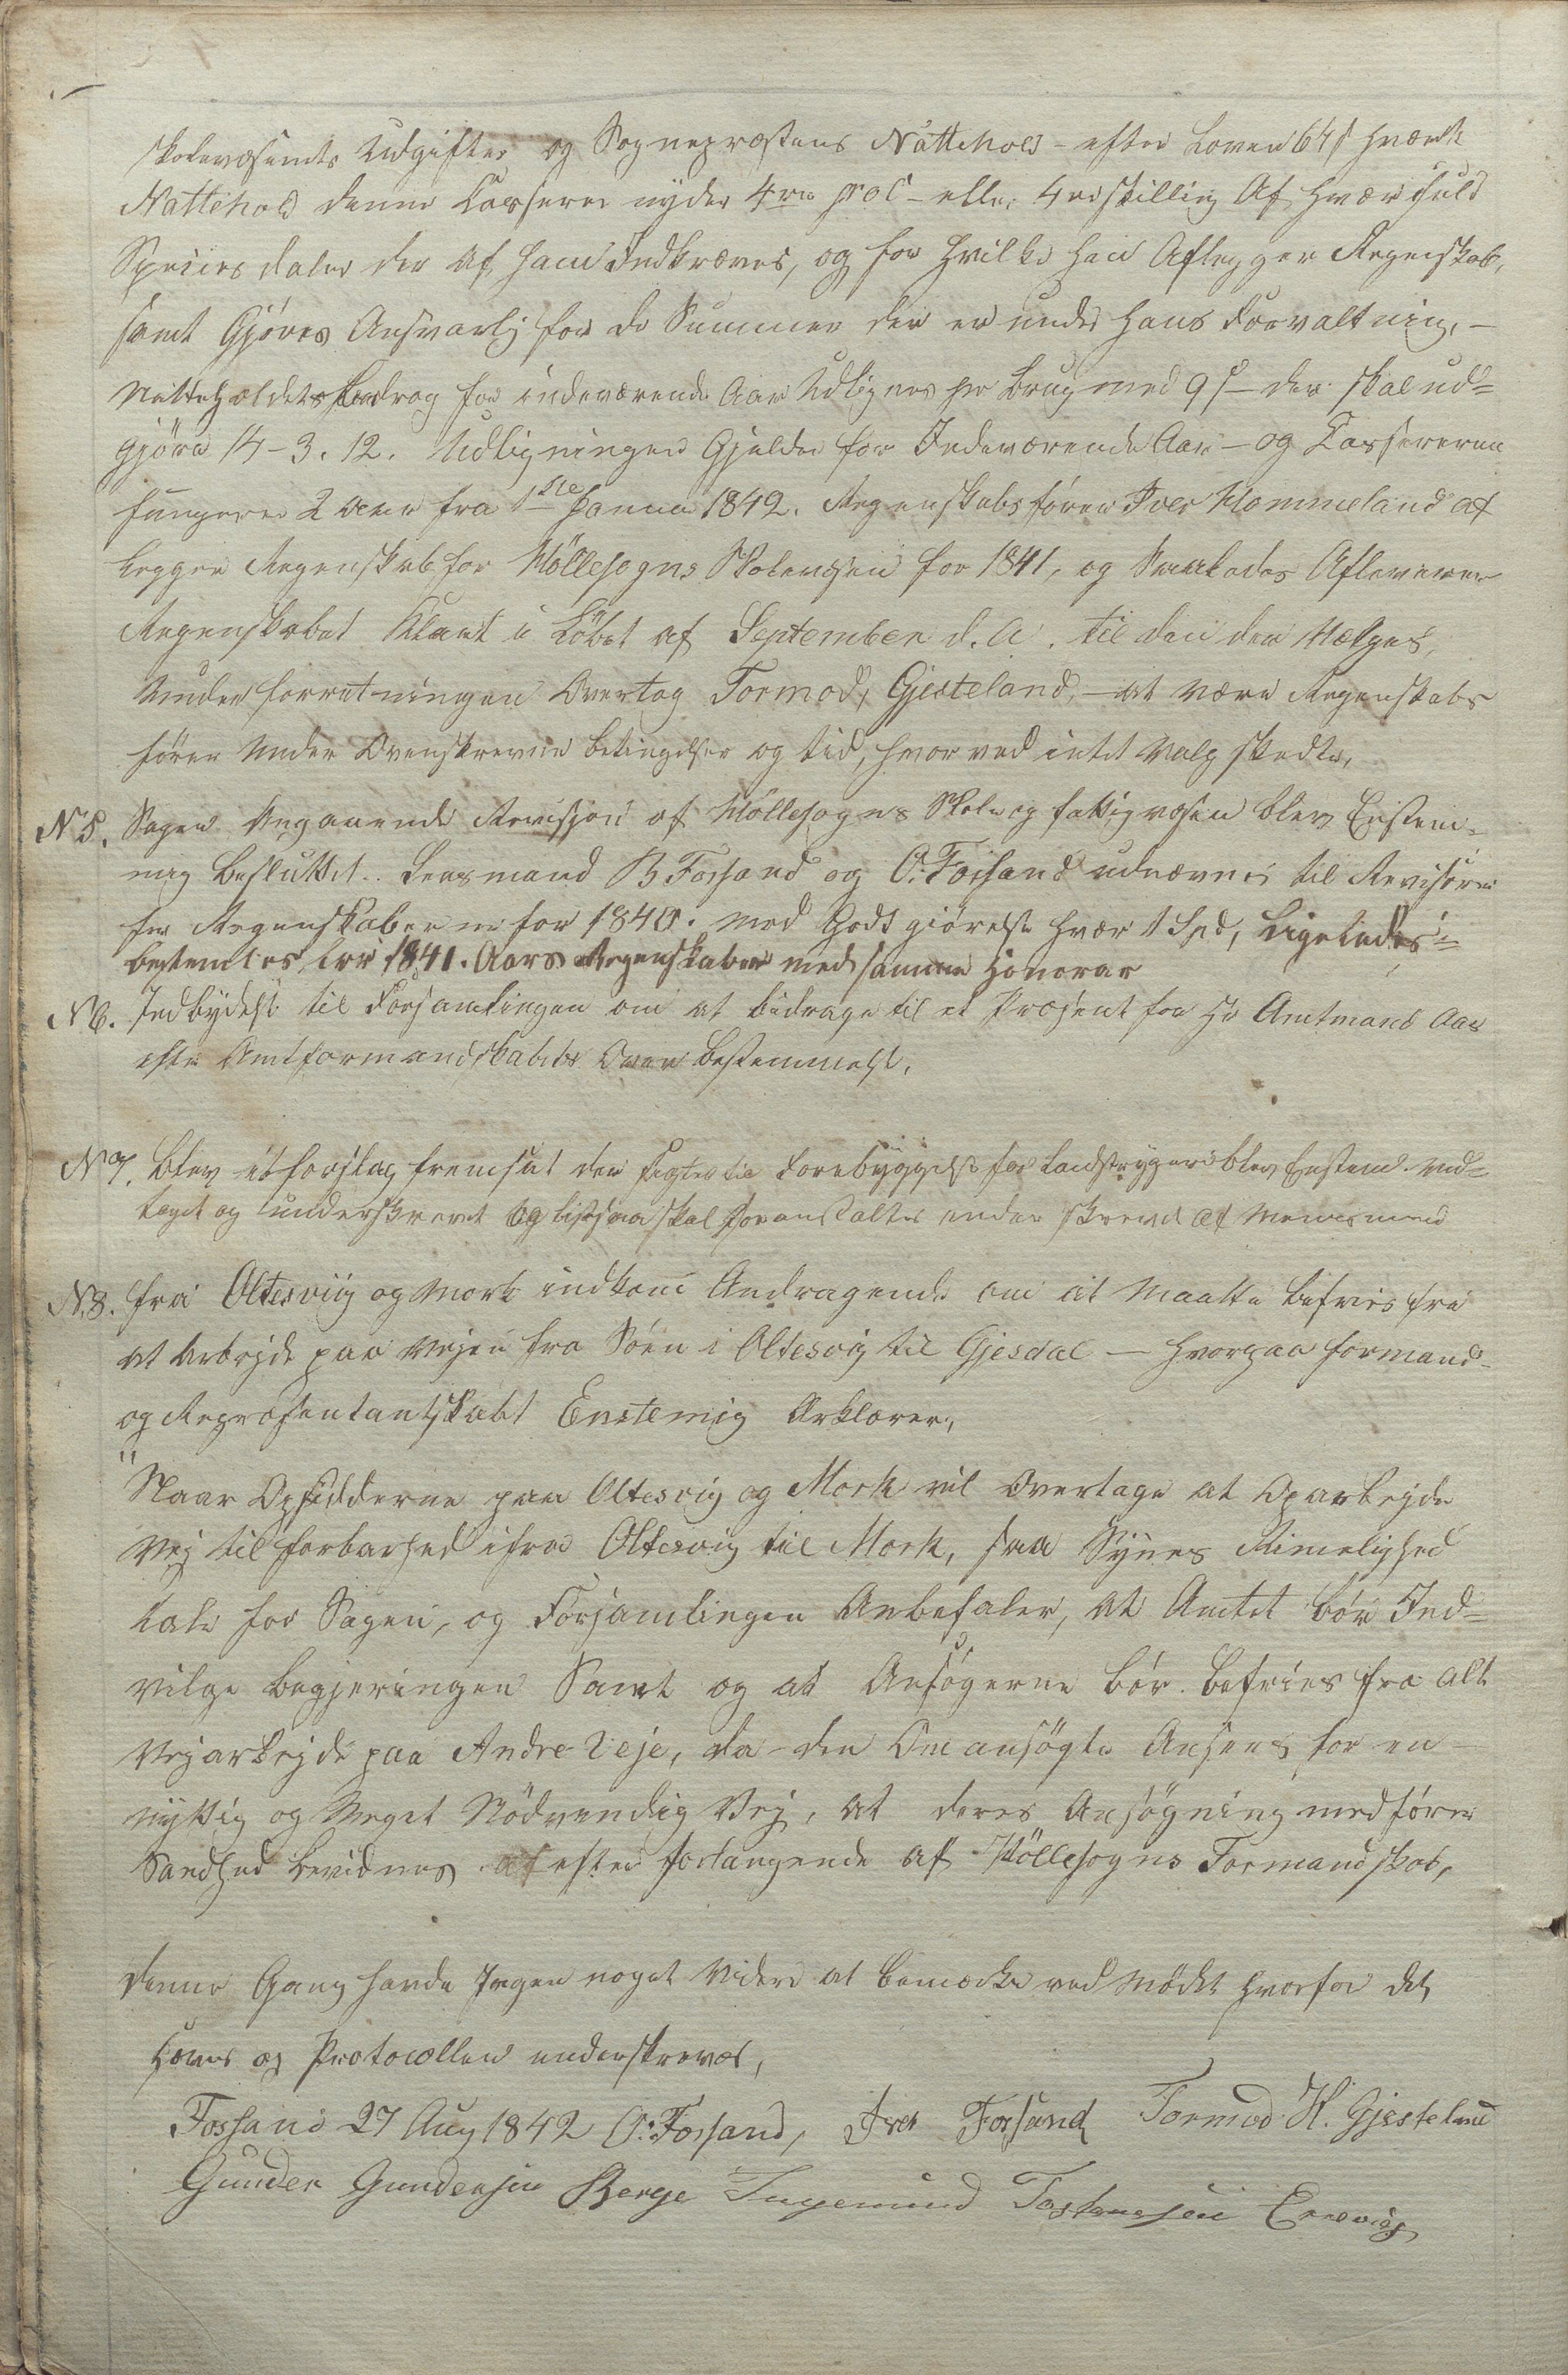 Skolevæsenets Udgifter og Sognepræstens Natteholds - efter Loven 64 s hvært
Nattehold denne Casserer nyder 4re pro C - eller 4re skilling Af hvær fuld
Speciesdaler der af ham Indkræves, og for hvilke han Aflegger Regenskab,
samt Gjöres Ansvarlig for de Summer der er under hans Forvaltning, -
Natteholdets Bedrag for indeværende Aar Udlignes per Brug med 9 s - der skal ud=
gjöre 14 - 3. 12. Udligningen Gjelder for Indeværende Aar - og Cassereren
fungerer 2 Aar fra 1ste Januar 1842. Regenskabsförer Iver Hommeland af
Legger Regenskab for Höllesogns Skolevæsen for 1841, og Saaledes Afleverer
Regenskabet Klart i Löbet af September d. A. til den der Vælges,
Under forretningen Overtog Tormod Gjesteland, - at være Regenskabs
förer Under Ovenskrevne betingelser og tid, hvorved intet Valg skedte,
N 5. Sagen Angaaende Revisjon af Höllesogns Skole og fattigvæsen blev Enstem=
mig besluttet. Lensmand B Fossand og O. Fossand udnævnes til Revisorer
for Regenskaberne for 1840. med Godtgjörelse hvær 1 Spd, Ligeledes=
bestemtes for 1841. Aars Regenskaber med samme Honorar
N 6. Indbydelse til Forsamlingen om at bidrage til et Præsent for Hr Amtmand Aas
efter Amtformandskabets Over bestemmelse,
N 7. Blev et forslag fremsat der sigter til Forebyggelse for Landstrygere blev Enstem. Ved=
taget og underskrevet og ligesaa skal foranstaltes underskrevet af Menigmand
N 8. fra Oltesviig og Mork indkom Andragende om at Maatte befries fra
at Arbejde paa Vejen fra Söen i Oltesvig til Gjesdal - hvorpaa formand-
og Repræsentantskabet Enstemig Erklærer,
" Naar Opsidderne paa Oltesvig og Mork vil Overtage at Oparbejde
Vej til forbarhed ifra Oltesvig til Mork, saa Synes Rimelighed
tale for Sagen, og Forsamlingen Anbefaler, at Amtet bör Ind=
vilge begjeringen Samt og at Ansögerne bör befries fra alt
Vejarbejde paa Andre Veje, da - den Omansögte Ansees for en
nyttig og Meget Nödvendig Vej, at deres Ansögning medförer
Sandhed bevidnes efter forlangende af Höllesogns Formandskab,
denne Gang havde Ingen noget Videre at bemærke ved Mödet hvorfor det
Hæves og Protocollen underskreves,
Fossand 27 Aug 1842 O. Fossand, Iver Fossand Tormod H. Gjesteland
Gunder Gundersen Berge Ingemund Tostensen Eresvig